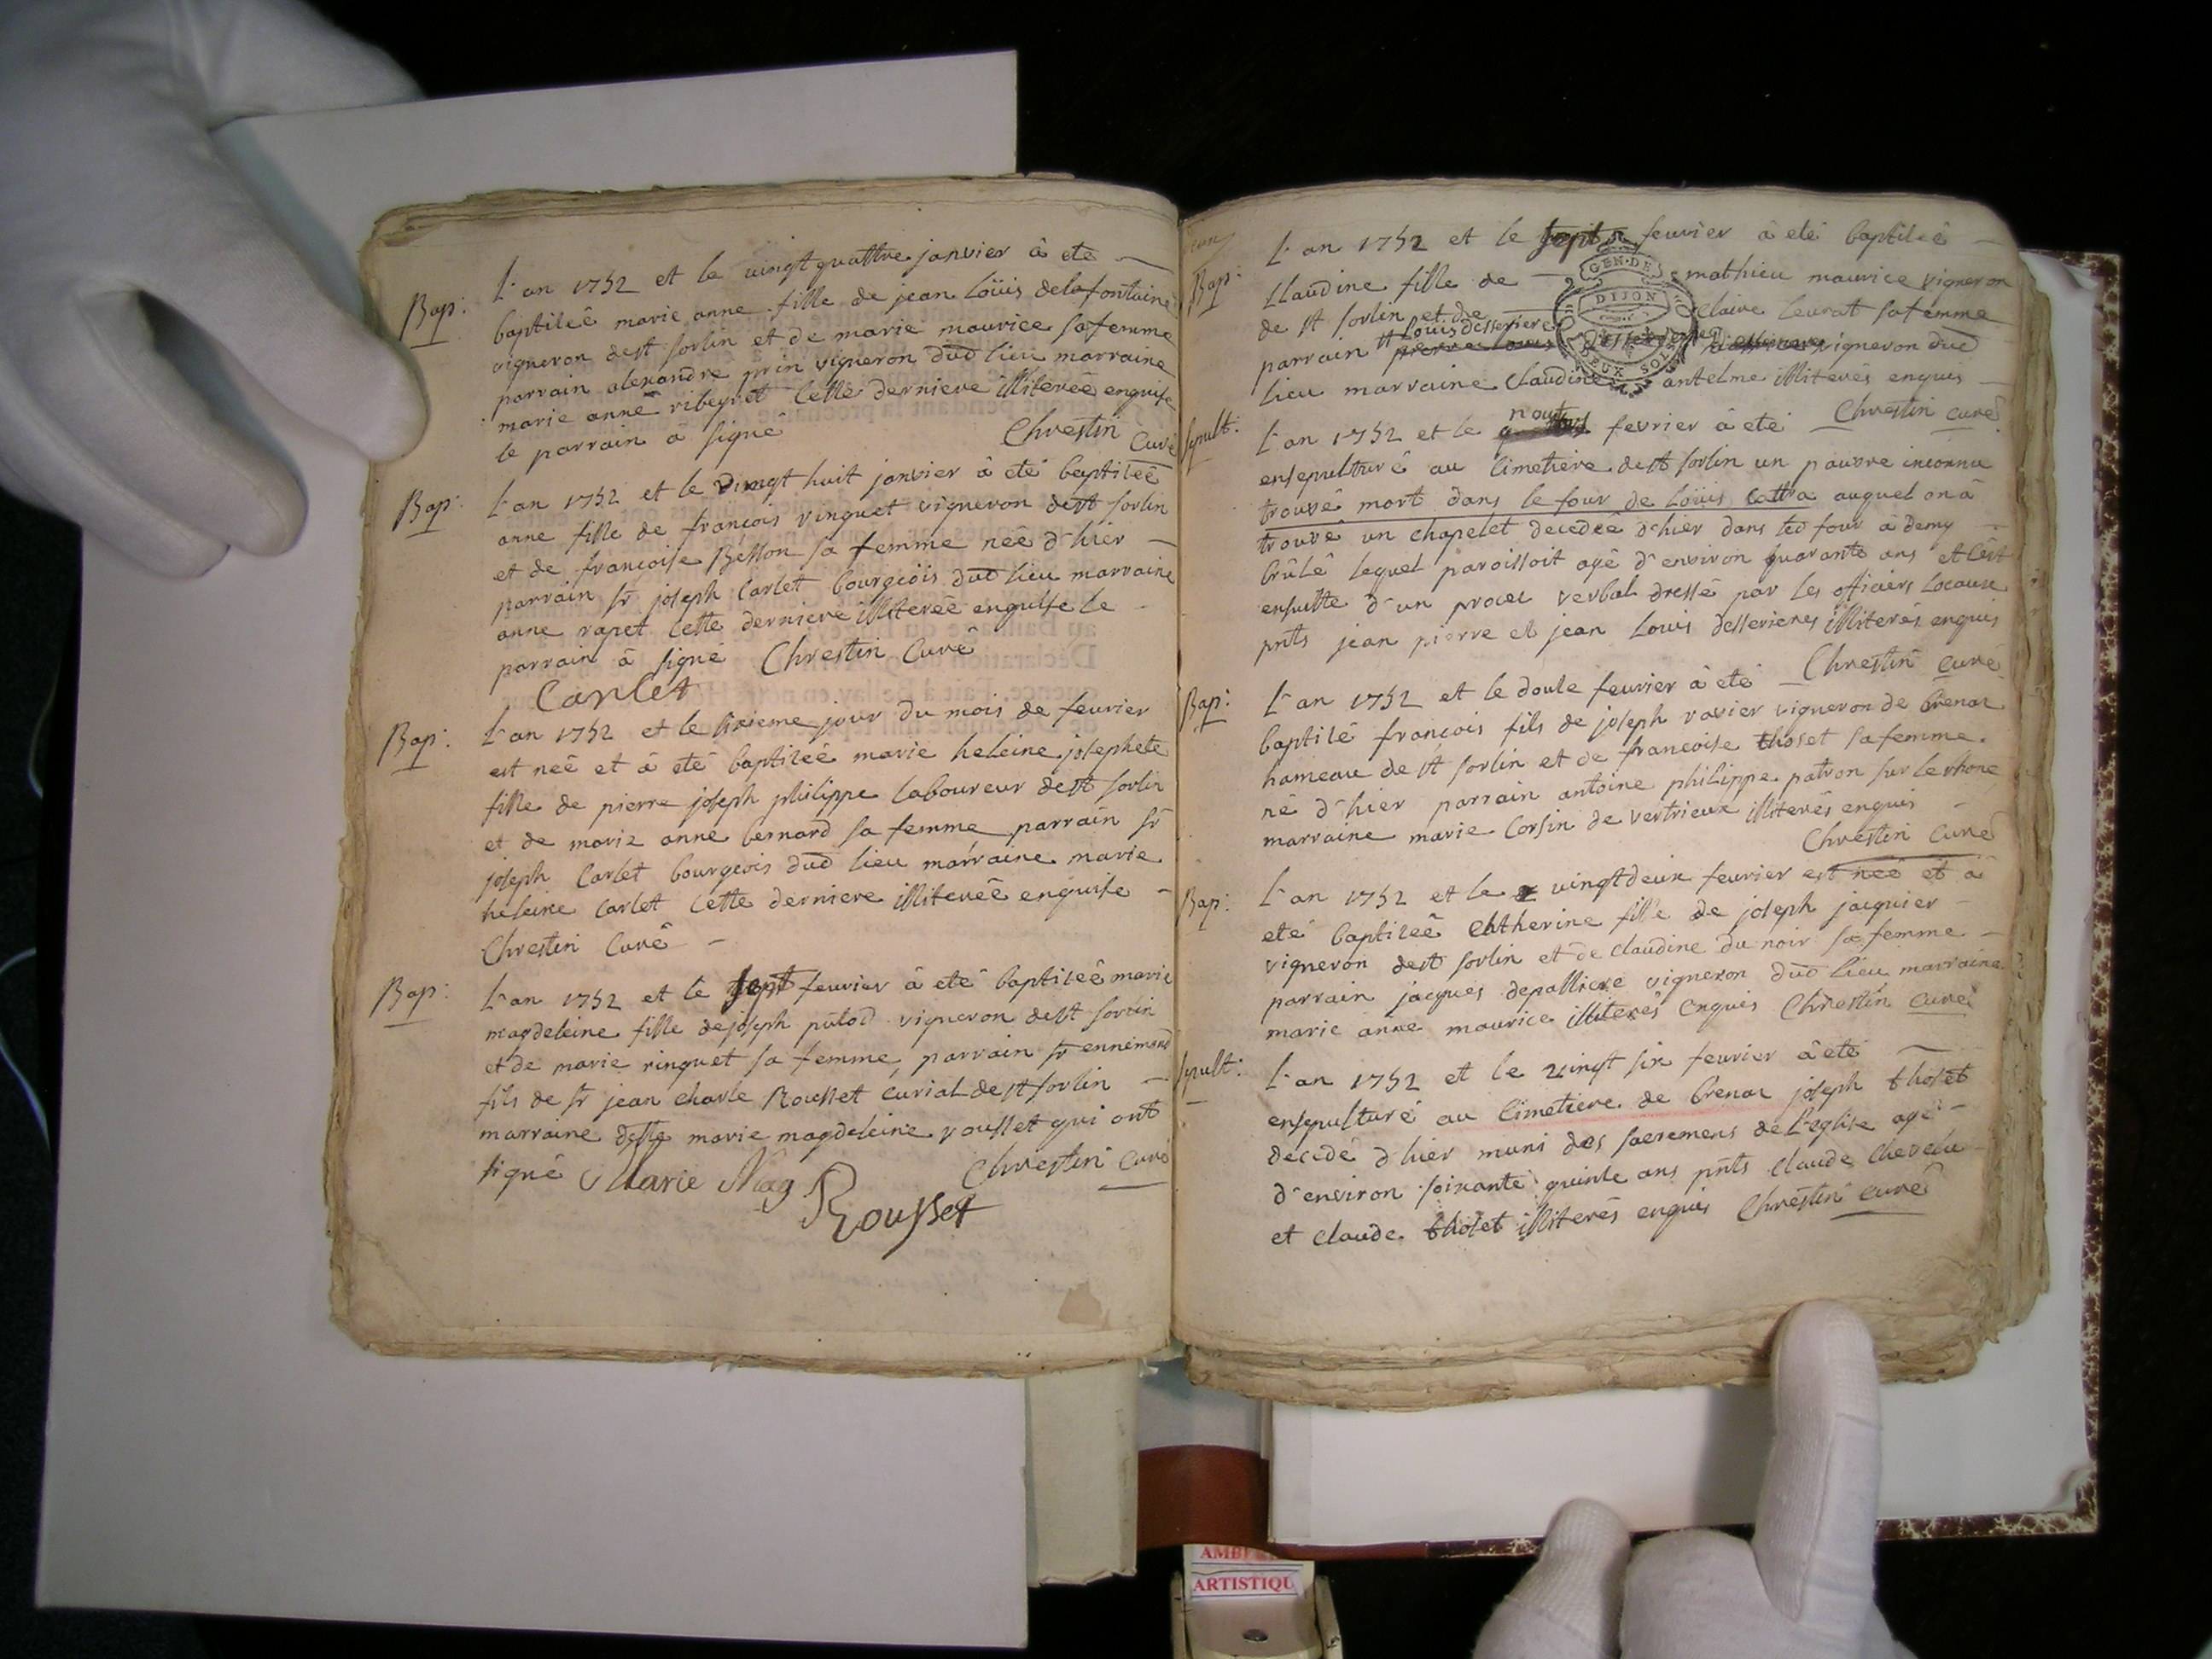 Bap:
L'an 1752 et le vingt quattre janvier â ete
baptiseê marie anne fille de jean Loüis delafontaine
vigneron de st sorlin et de marie maurice sa femme
parrain alexandre prin vigneron dud lieu marraine
marie anne ribeyret cette derniere illitereê enquise
le parrain â signê Chrestin Curê
Bap:
L'an 1752 et le vingt huit janvier â etê baptiseê
anne fille de françois vinguet vigneron de st sorlin
et de françoise Besson sa femme neê d'hier
parrain sr joseph Carlet bourgeois dud lieu marraine
anne rapet cette derniere illitereê enquise le
parrain â signê Chrestin Curê
Carlet
Bap:
L'an 1752 et le sixieme jour du mois de feurier
est neê et â etê baptiseê marie heleine josephete
fille de pierre joseph philippe laboureur de st sorlin
et de marie anne bernard sa femme parrain sr
joseph Carlet bourgeois dud lieu marraine marie
heleine Carlet cette derniere illitereê enquise
Chrestin Curê
Bap:
L'an 1752 et le sept feurier â etê baptiseê marie
magdeleine fille de joseph pulod vigneron de st sorlin
et de marie ringuet sa femme, parrain sr ennemond
fils de sr jean charle Rousset Curial de st sorlin
marraine delle marie magdeleine rousset qui ont
signê Marie Mag Chrestin Curê
Rousset
Bap:
L'an 1752 et le sept feurier â etê baptiseê
Claudine fille de mathieu maurice vigneron
de st sorlin et de Claire leurat sa femme
GEN. DE
DIJON
DEUX SOLS
Louis desserieres
parrain vigneron dud
lieu marraine Claudine antelme illiterês enquis
Chrestin curê
Sepult:
neuf
L'an 1752 et le fevrier â etê
ensepulturê au Cimetiere de st sorlin un pauvre inconnu
trouvê mort dans le four de Loüis Cattra auquel on â
trouvê un chapelet decedeê d'hier dans led four â demy
brûlê lequel paroissoit agê d'environ quarante ans et c'est
ensuitte d'un procec verbal dressê par les officiers Locaux
pnts jean pierre et jean Louis desserieres illiterês enquis
Chrestin Curê
Bap:
L'an 1752 et le douse feurier â etê
baptisê françois fils de joseph ravier vigneron de Crenaz
hameau de st sorlin et de francoise thoset sa femme.
nê d'hier parrain antoine philippe patron sur le rhône
marraine marie Corsin de vertrieux illiterês enquis
Chrestin Curê
Bap:
L'an 1752 et le vingt deux feurier est neê et â
etê baptiseê Catherine fille de joseph jaiquier
vigneron de st sorlin et de claudine du noir sa femme
parrain jacques depalliere vigneron dud lieu marraine
marie anne maurice illiterês enquis Chrestin Curê
Sepult:
L'an 1752 et le vingt six feurier â etê
ensepulturê au Cimetiere de Crenaz joseph thoset
decedê d'hier muni des sacremens de l'eglise agê
d'environ soixante quinse ans pnts claude chevelu
et claude thoset illiterês enquis Chrestin Curê
ARTISTIQU